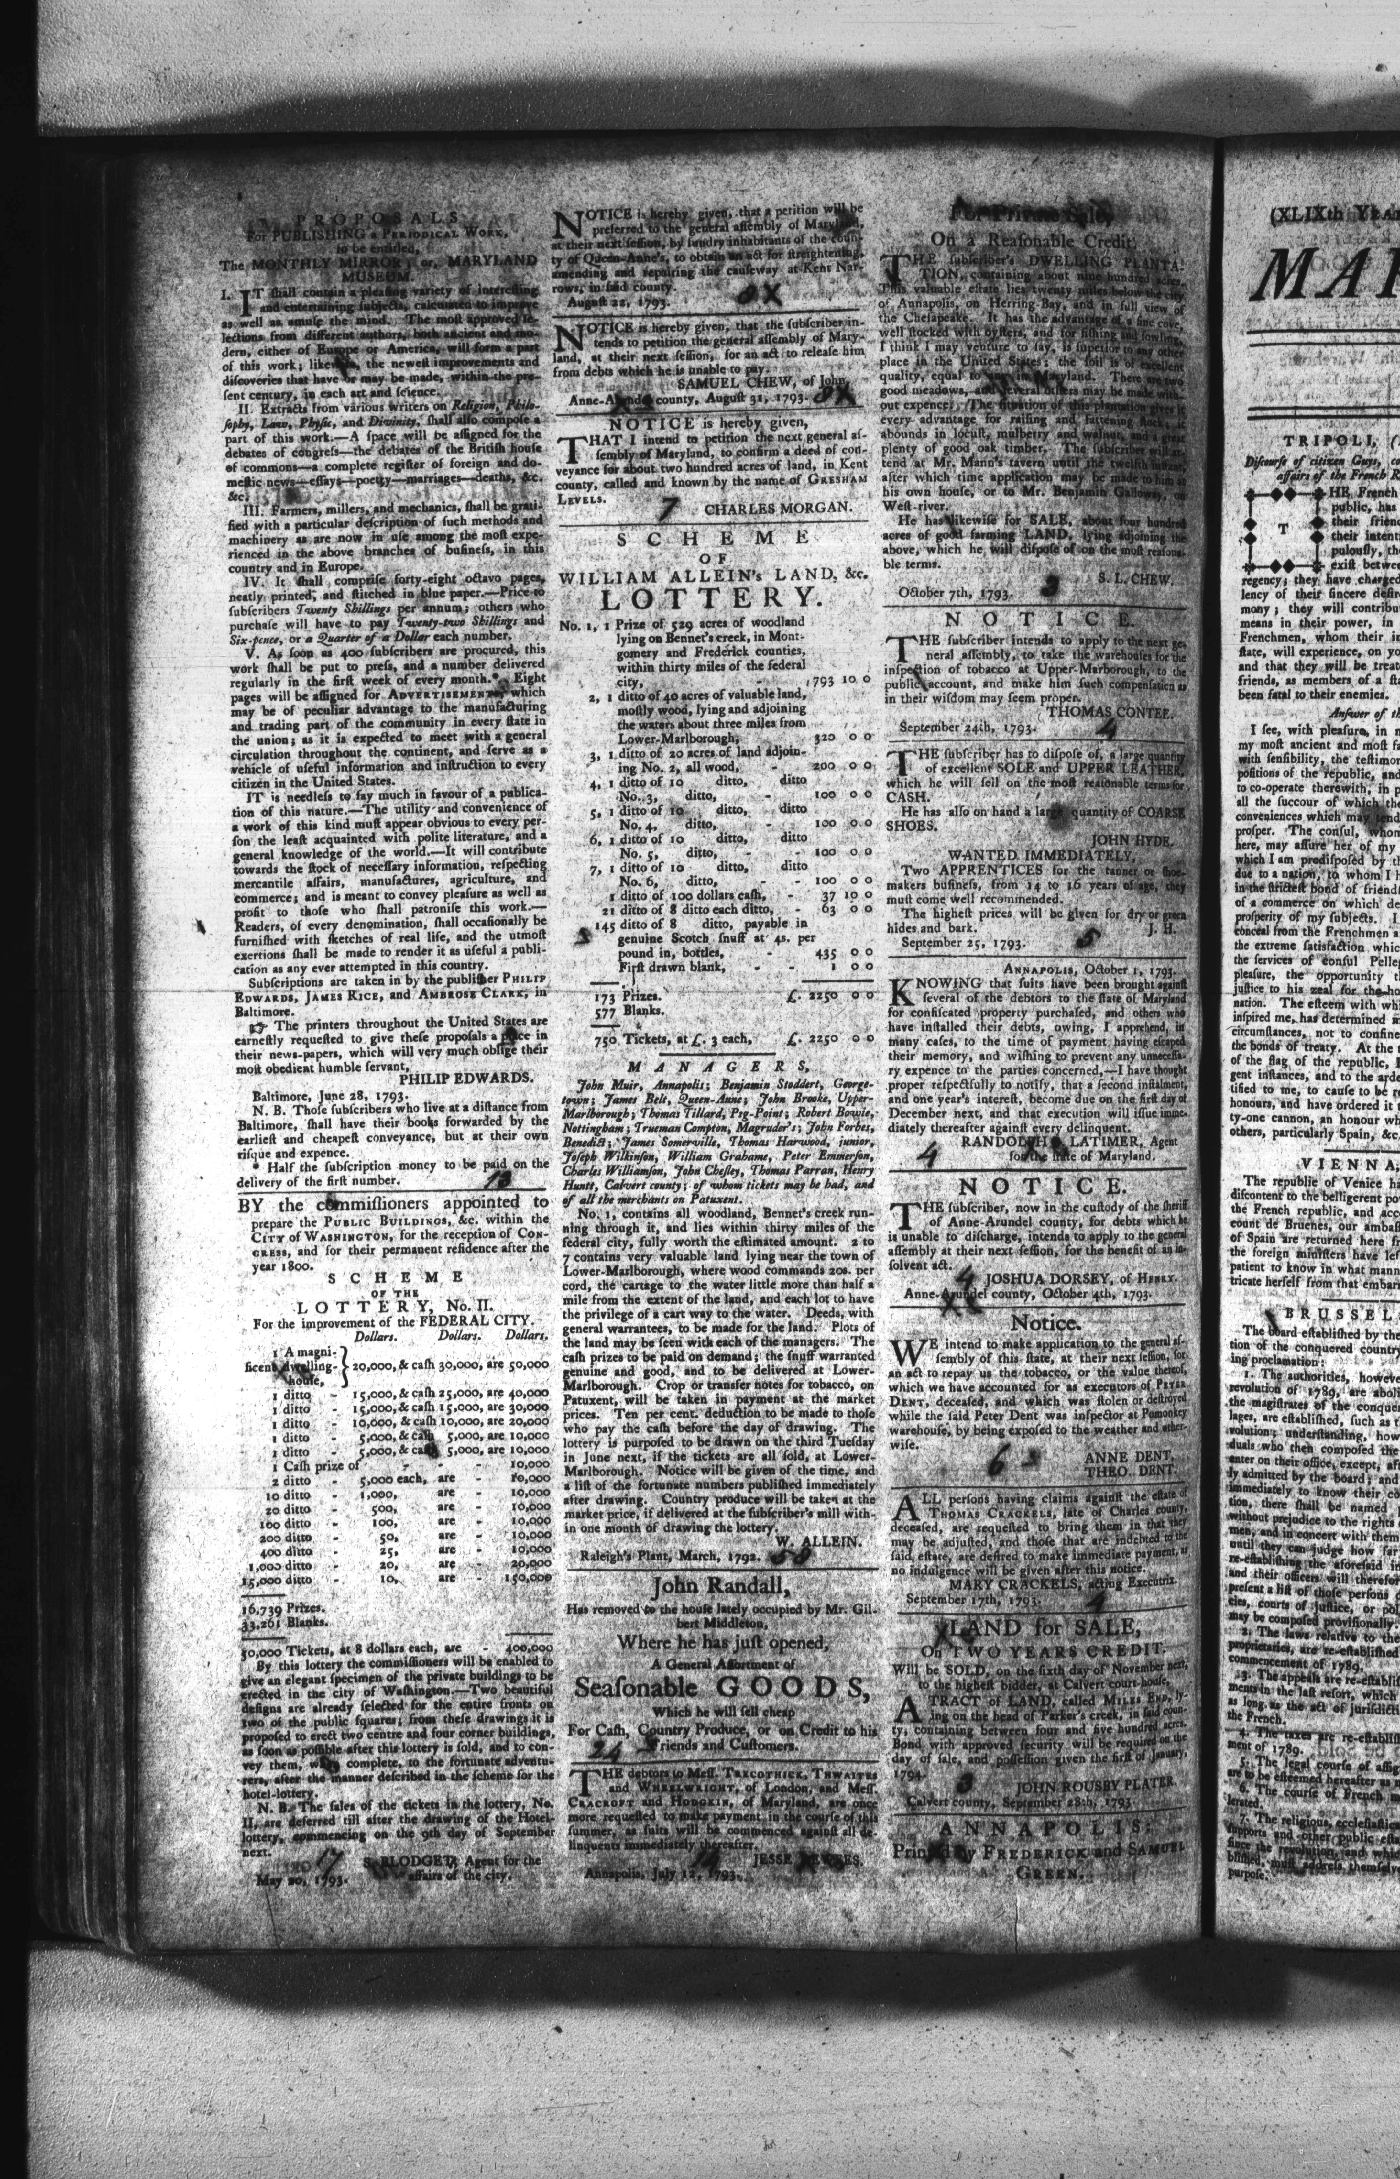 PROPOSALS
For PUBLISHING a PERIODICAL WORK,
to be entitled,
The MONTHLY MIRROR; or, MARYLAND
MUSEUM.
I. IT ſhall contain a pleaſing variety of intereſting
and entertaining ſubjects, calculated to improve
as well as amuſe the mind. The moſt approved ſe-
lections from different authors, both ancient and mo-
dern, either of Europe or America, will form a part
of this work; likewiſe, the neweſt improvements and
diſcoveries that have or may be made, within the pre-
ſent century, in each art and ſcience.
II. Extracts from various writers on Religion, Philo-
ſophy, Law, Phyſic, and Divinity, ſhall alſo compoſe a
part of this work.—A ſpace will be aſſigned for the
debates of congreſs—the debates of the Britiſh houſe
of commons—a complete regiſter of foreign and do-
meſtic news—eſſays—poetry—marriages—deaths, &c.
&c.
III. Farmers, millers, and mechanics, ſhall be grati-
fied with a particular deſcription of ſuch methods and
machinery as are now in uſe among the moſt expe-
rienced in the above branches of buſineſs, in this
country and in Europe.
IV. It ſhall compriſe forty-eight octavo pages,
neatly printed, and ſtitched in blue paper.—Price to
ſubſcribers Twenty Shillings per annum; others who
purchaſe will have to pay Twenty-two Shillings and
Six-pence, or a Quarter of a Dollar each number.
V. As ſoon as 400 ſubſcribers are procured, this
work ſhall be put to preſs, and a number delivered
regularly in the firſt week of every month.* Eight
pages will be aſſigned for ADVERTISEMENTS, which
may be of peculiar advantage to the manufacturing
and trading part of the community in every ſtate in
the union; as it is expected to meet with a general
circulation throughout the continent, and ſerve as a
vehicle of uſeful information and inſtruction to every
citizen in the United States.
IT is needleſs to ſay much in favour of a publica-
tion of this nature.—The utility and convenience of
a work of this kind muſt appear obvious to every per-
ſon the leaſt acquainted with polite literature, and a
general knowledge of the world.—It will contribute
towards the ſtock of neceſſary information, reſpecting
mercantile affairs, manufactures, agriculture, and
commerce; and is meant to convey pleaſure as well as
profit to thoſe who ſhall patroniſe this work.—
Readers, of every denomination, ſhall occaſionally be
furniſhed with ſketches of real life, and the utmoſt
exertions ſhall be made to render it as uſeful a publi-
cation as any ever attempted in this country.
Subſcriptions are taken in by the publiſher PHILIP
EDWARDS, JAMES RICE, and AMBROSE CLARK, in
Baltimore.
☞ The printers throughout the United States are
earneſtly requeſted to give theſe propoſals a place in
their news-papers, which will very much oblige their
moſt obedient humble ſervant,
PHILIP EDWARDS.
Baltimore, June 28, 1793.
N. B. Thoſe ſubſcribers who live at a diſtance from
Baltimore, ſhall have their books forwarded by the
earlieſt and cheapeſt conveyance, but at their own
riſque and expence.
* Half the ſubſcription money to be paid on the
delivery of the firſt number.
BY the commiſſioners appointed to
prepare the PUBLIC BUILDINGS, &c. within the
CITY of WASHINGTON, for the reception of CON-
GRESS, and for their permanent reſidence after the
year 1800.
SCHEME
OF THE
LOTTERY, No. II.
For the improvement of the FEDERAL CITY.
Dollars. Dollars. Dollars.
1 A magni-
ficent dwelling- } 20,000, & caſh 30,000, are 50,000
houſe,
1 ditto - 15,000, & caſh 25,000, are 40,000
1 ditto - 15,000, & caſh 15,000, are 30,000
1 ditto - 10,000, & caſh 10,000, are 20,000
1 ditto - 5,000, & caſh 5,000, are 10,000
1 ditto - 5,000, & caſh 5,000, are 10,000
1 Caſh prize of - - - 10,000
2 ditto - 5,000 each, are - 10,000
10 ditto - 1,000, are - 10,000
20 ditto - 500, are - 10,000
100 ditto - 100, are - 10,000
200 ditto - 50, are - 10,000
400 ditto - 25, are - 10,000
1,000 ditto - 20, are - 20,000
15,000 ditto - 10, are - 150,000
16,739 Prizes.
33,261 Blanks.
50,000 Tickets, at 8 dollars each, are - 400,000
By this lottery the commiſſioners will be enabled to
give an elegant ſpecimen of the private buildings to be
erected in the city of Waſhington.—Two beautiful
deſigns are already ſelected for the entire fronts on
two of the public ſquares; from theſe drawings it is
propoſed to erect two centre and four corner buildings,
as ſoon as poſſible after this lottery is ſold, and to con-
vey them, when complete, to the fortunate adventu-
rers, after the manner deſcribed in the ſcheme for the
hotel-lottery.
N. B. The ſales of the tickets in the lottery, No.
II, are deferred till after the drawing of the Hotel-
lottery, commencing on the 9th day of September
next.
17
S. BLODGET, Agent for the
affairs of the city.
May 20, 1793.
NOTICE is hereby given, that a petition will be
preferred to the general aſſembly of Maryland,
at their next ſeſſion, by ſundry inhabitants of the coun-
ty of Queen-Anne's, to obtain an act for ſtreightening,
amending and repairing the cauſeway at Kent Nar-
rows, in ſaid county.
Auguſt 22, 1793. 8X
NOTICE is hereby given, that the ſubſcriber in-
tends to petition the general aſſembly of Mary-
land, at their next ſeſſion, for an act to releaſe him
from debts which he is unable to pay.
SAMUEL CHEW, of John.
Anne-Arundel county, Auguſt 31, 1793. 8X
NOTICE is hereby given,
THAT I intend to petition the next general aſ-
ſembly of Maryland, to confirm a deed of con-
veyance for about two hundred acres of land, in Kent
county, called and known by the name of GRESHAM
LEVELS.
7 CHARLES MORGAN.
SCHEME
OF
WILLIAM ALLEIN's LAND, &c.
LOTTERY.
No. 1, 1 Prize of 529 acres of woodland
lying on Bennet's creek, in Mont-
gomery and Frederick counties,
within thirty miles of the federal
city, - - 793 10 0
2, 1 ditto of 40 acres of valuable land,
moſtly wood, lying and adjoining
the waters about three miles from
Lower-Marlborough, 320 0 0
3, 1 ditto of 20 acres of land adjoin-
ing No. 2, all wood, - 200 0 0
4, 1 ditto of 10 ditto, ditto
No. 3, ditto, - - 100 0 0
5, 1 ditto of 10 ditto, ditto
No. 4, ditto, - - 100 0 0
6, 1 ditto of 10 ditto, ditto
No. 5, ditto, - - 100 0 0
7, 1 ditto of 10 ditto, ditto
No. 6, ditto, - - 100 0 0
1 ditto of 100 dollars caſh, - 37 10 0
21 ditto of 8 ditto each ditto, - 63 0 0
145 ditto of 8 ditto, payable in
genuine Scotch ſnuff at 4s. per
pound in, bottles, - 435 0 0
Firſt drawn blank, - - 1 0 0
173 Prizes. £. 2250 0 0
577 Blanks.
750 Tickets, at £. 3 each, £. 2250 0 0
MANAGERS,
John Muir, Annapolis; Benjamin Stoddert, George-
town; James Belt, Queen-Anne; John Brooke, Upper-
Marlborough; Thomas Tillard, Pig-Point; Robert Bowie,
Nottingham; Trueman Compton, Magruder's; John Forbes,
Benedict; James Somerville, Thomas Harwood, junior,
Joſeph Wilkinſon, William Grahame, Peter Emmerſon,
Charles Williamſon, John Cheſley, Thomas Parran, Henry
Huntt, Calvert county; of whom tickets may be had, and
of all the merchants on Patuxent.
No. 1, contains all woodland, Bennet's creek run-
ning through it, and lies within thirty miles of the
federal city, fully worth the eſtimated amount. 2 to
7 contains very valuable land lying near the town of
Lower-Marlborough, where wood commands 20s. per
cord, the cartage to the water little more than half a
mile from the extent of the land, and each lot to have
the privilege of a cart way to the water. Deeds, with
general warrantees, to be made for the land. Plots of
the land may be ſeen with each of the managers. The
caſh prizes to be paid on demand; the ſnuff warranted
genuine and good, and to be delivered at Lower-
Marlborough. Crop or transfer notes for tobacco, on
Patuxent, will be taken in payment at the market
prices. Ten per cent. deduction to be made to thoſe
who pay the caſh before the day of drawing. The
lottery is purpoſed to be drawn on the third Tueſday
in June next, if the tickets are all ſold, at Lower-
Marlborough. Notice will be given of the time, and
a liſt of the fortunate numbers publiſhed immediately
after drawing. Country produce will be taken at the
market price, if delivered at the ſubſcriber's mill with-
in one month of drawing the lottery.
W. ALLEIN.
Raleigh's Plant, March, 1792.
John Randall,
Has removed to the houſe lately occupied by Mr. Gil-
bert Middleton,
Where he has juſt opened,
A General Aſſortment of
Seaſonable GOODS,
Which he will ſell cheap
For Caſh, Country Produce, or on Credit to his
Friends and Cuſtomers.
THE debtors to Meſſ. TRECOTHICK, THWAITES
and WHEELWRIGHT, of London, and Meſſ.
CRACROFT and HODGKIN, of Maryland, are once
more requeſted to make payment in the courſe of this
ſummer, as ſuits will be commenced againſt all de-
linquents immediately thereafter.
JESSE
Annapolis, July 12, 1793.
For Private Sale,
On a Reaſonable Credit,
THE ſubſcriber's DWELLING PLANTA-
TION, containing about nine hundred acres.
This valuable eſtate lies twenty miles below the city
of Annapolis, on Herring-Bay, and in full view of
the Cheſapeake. It has the advantage of a fine cove,
well ſtocked with oyſters, and for fiſhing and fowling,
I think I may venture to ſay, is ſuperior to any other
place in the United States; the ſoil is of excellent
quality, equal to any in Maryland. There are two
good meadows, and ſeveral others may be made with-
out expence. The ſituation of this plantation gives it
every advantage for raiſing and fattening ſtock, it
abounds in locuſt, mulberry and walnut, and a great
plenty of good oak timber. The ſubſcriber will at-
tend at Mr. Mann's tavern until the twelfth inſtant,
after which time application may be made to him at
his own houſe, or to Mr. Benjamin Galloway, on
Weſt-river.
He has likewiſe for SALE, about four hundred
acres of good farming LAND, lying adjoining the
above, which he will diſpoſe of on the moſt reaſona-
ble terms.
S. L. CHEW.
October 7th, 1793. 3
NOTICE.
THE ſubſcriber intends to apply to the next ge-
neral aſſembly, to take the warehouſes for the
inſpection of tobacco at Upper-Marborough, to the
public account, and make him ſuch compenſation as
in their wiſdom may ſeem proper.
THOMAS CONTEE.
September 24th, 1793. 4
THE ſubſcriber has to diſpoſe of, a large quantity
of excellent SOLE and UPPER LEATHER,
which he will ſell on the moſt reaſonable terms for
CASH.
He has alſo on hand a large quantity of COARSE
SHOES.
JOHN HYDE.
WANTED IMMEDIATELY,
Two APPRENTICES for the tanner or ſhoe-
makers buſineſs, from 14 to 16 years of age, they
muſt come well recommended.
The higheſt prices will be given for dry or green
hides and bark. J. H.
September 25, 1793. 5
ANNAPOLIS, October 1, 1793.
KNOWING that ſuits have been brought againſt
ſeveral of the debtors to the ſtate of Maryland
for confiſcated property purchaſed, and others who
have inſtalled their debts, owing, I apprehend, in
many caſes, to the time of payment having eſcaped
their memory, and wiſhing to prevent any unneceſſa-
ry expence to the parties concerned,—I have thought
proper reſpectfully to notify, that a ſecond inſtalment,
and one year's intereſt, become due on the firſt day of
December next, and that execution will iſſue imme-
diately thereafter againſt every delinquent.
RANDOLPH B. LATIMER, Agent
4 for the ſtate of Maryland.
NOTICE.
THE ſubſcriber, now in the cuſtody of the ſheriff
of Anne-Arundel county, for debts which he
is unable to diſcharge, intends to apply to the general
aſſembly at their next ſeſſion, for the benefit of an in-
ſolvent act.
4 JOSHUA DORSEY, of HENRY.
Anne-Arundel county, October 4th, 1793.
Notice.
WE intend to make application to the general aſ-
ſembly of this ſtate, at their next ſeſſion, for
an act to repay us the tobacco, or the value thereof,
which we have accounted for as executors of PETER
DENT, deceaſed, and which was ſtolen or deſtroyed
while the ſaid Peter Dent was inſpector at Pomonkey
warehouſe, by being expoſed to the weather and other-
wiſe.
6 ANNE DENT,
THEO. DENT.
ALL perſons having claims againſt the eſtate of
THOMAS CRACKELS, late of Charles county,
deceaſed, are requeſted to bring them in that they
may be adjuſted, and thoſe that are indebted to the
ſaid eſtate, are deſired to make immediate payment, as
no indulgence will be given after this notice.
MARY CRACKELS, acting Executrix.
September 17th, 1793. 4
LAND for SALE,
On TWO YEARS CREDIT.
Will be SOLD, on the ſixth day of November next,
to the higheſt bidder, at Calvert court-houſe,
A TRACT of LAND, called MILES END, ly-
ing on the head of Parker's creek, in ſaid coun-
ty, containing between four and five hundred acres.
Bond with approved ſecurity will be required on the
day of ſale, and poſſeſſion given the firſt of January,
1794.
3 JOHN ROUSBY PLATER.
Calvert county, September 28th, 1793.
ANNAPOLIS:
Printed by FREDERICK and SAMUEL
GREEN.
(XLIXth YEAR
MAR
TRIPOLI, (
Diſcourſe of citizen Guys, co
affairs of the French R
THE French
public, has
their frien
their intenti
pulouſly, th
exiſt betwee
regency; they have charged
lency of their ſincere deſire
mony; they will contribu
means in their power, in
Frenchmen, whom their in
ſtate, will experience, on yo
and that they will be treat
friends, as members of a ſta
been fatal to their enemies.
Anſwer of th
I ſee, with pleaſure, in m
my moſt ancient and moſt fa
with ſenſibility, the teſtimon
poſitions of the republic, and
to co-operate therewith, in p
all the ſuccour of which the
conveniences which may tend
proſper. The conſul, whom
here, may aſſure her of my
which I am prediſpoſed by th
due to a nation, to whom I h
in the ſtricteſt bond of friend
of a commerce on which de
proſperity of my ſubjects. I
conceal from the Frenchmen a
the extreme ſatisfaction whic
the ſervices of conſul Pelleg
pleaſure, the opportunity t
juſtice to his zeal for the ho
nation. The eſteem with whi
inſpired me, has determined m
circumſtances, not to confine
the bonds of treaty. At the
of the flag of the republic, I
gent inſtances, and to the arde
tified to me, to cauſe to be re
honours, and have ordered it
ty-one cannon, an honour wh
others, particularly Spain, &c.
VIENNA,
The republic of Venice ha
diſcontent to the belligerent po
the French republic, and acc
count de Bruenes, our ambaſſ
of Spain are returned here fr
the foreign miniſters have lef
patient to know in what mann
tricate herſelf from that embar
BRUSSEL
The board eſtabliſhed by the
tion of the conquered country
ing proclamation:
1. The authorities, howeve
revolution of 1789, are aboli
the magiſtrates of the conque
lages, are eſtabliſhed, ſuch as t
volution; underſtanding, how
duals who then compoſed the
enter on their office, except, aft
ly admitted by the board; and
immediately to know their co
tion, there ſhall be named
without prejudice to the rights
men, and in concert with them
until they can judge how far
re-eſtabliſhing the aforeſaid in
and their officers will therefor
preſent a liſt of thoſe perſons
cies, courts of juſtice, or pol
may be compoſed proviſionally.
2. The laws relative to the
proprietaries, are re-eſtabliſhed
commencement of 1789.
3. The appeals are re-eſtabliſ
ments in the laſt reſort, which
as long as the act of juriſdicti
the French.
4. The taxes are re-eſtabliſ
ment of 1789.
5. The legal courſe of aſſig
are to be eſteemed hereafter as
6. The courſe of French m
lerated.
7. The religious, eccleſiaſtic
ſupports and other public eſta
ſince the revolution, and whic
bliſhed, muſt addreſs themſelv
purpoſe.